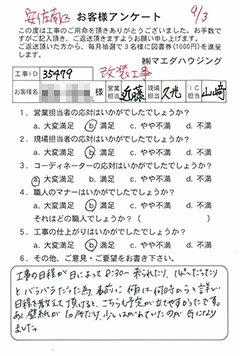 安佐南区 お客様アンケート 9/3
この度は工事のご用命を頂きありがとうございました。お手数で
すがご記入頂き、ご返送頂きますようお願い申し上げます。
ご返送頂いた方から、毎月抽選で3名様に図書券(1000円)を進呈
します。
㈱マエダハウジング
工事ID 35479 改装工事
お客様名 営業担当 近藤 現場担当 久光 IC担当 山崎
1. 営業担当者の応対はいかがでしたでしょうか?
a. 大変満足 b. 満足 c. やや不満 d. 不満
2. 現場担当者の応対はいかがでしたでしょうか?
a. 大変満足 b. 満足 c. やや不満 d. 不満
3. コーディネーターの応対はいかがでしたでしょうか?
a. 大変満足 b. 満足 c. やや不満 d. 不満
4. 職人のマナーはいかがでしたでしょうか?
a. 大変満足 b. 満足 c. やや不満 d. 不満
それはどの職人でしょうか?( )
5. 工事の仕上がりはいかがでしたでしょうか?
a. 大変満足 b. 満足 c. やや不満 d. 不満
6. その他、ご意見・ご要望をお書き下さい。
工事の日程が日によって8:30~来られたり、14:00~だったり
とバラバラだった為、事前に何日は何時からと詳しい
日程を教えて頂けると、こちらも予定が立てやすかったです。
あと壁紙が1ヶ所だけ、少しはがれていたのが気になり
ました。